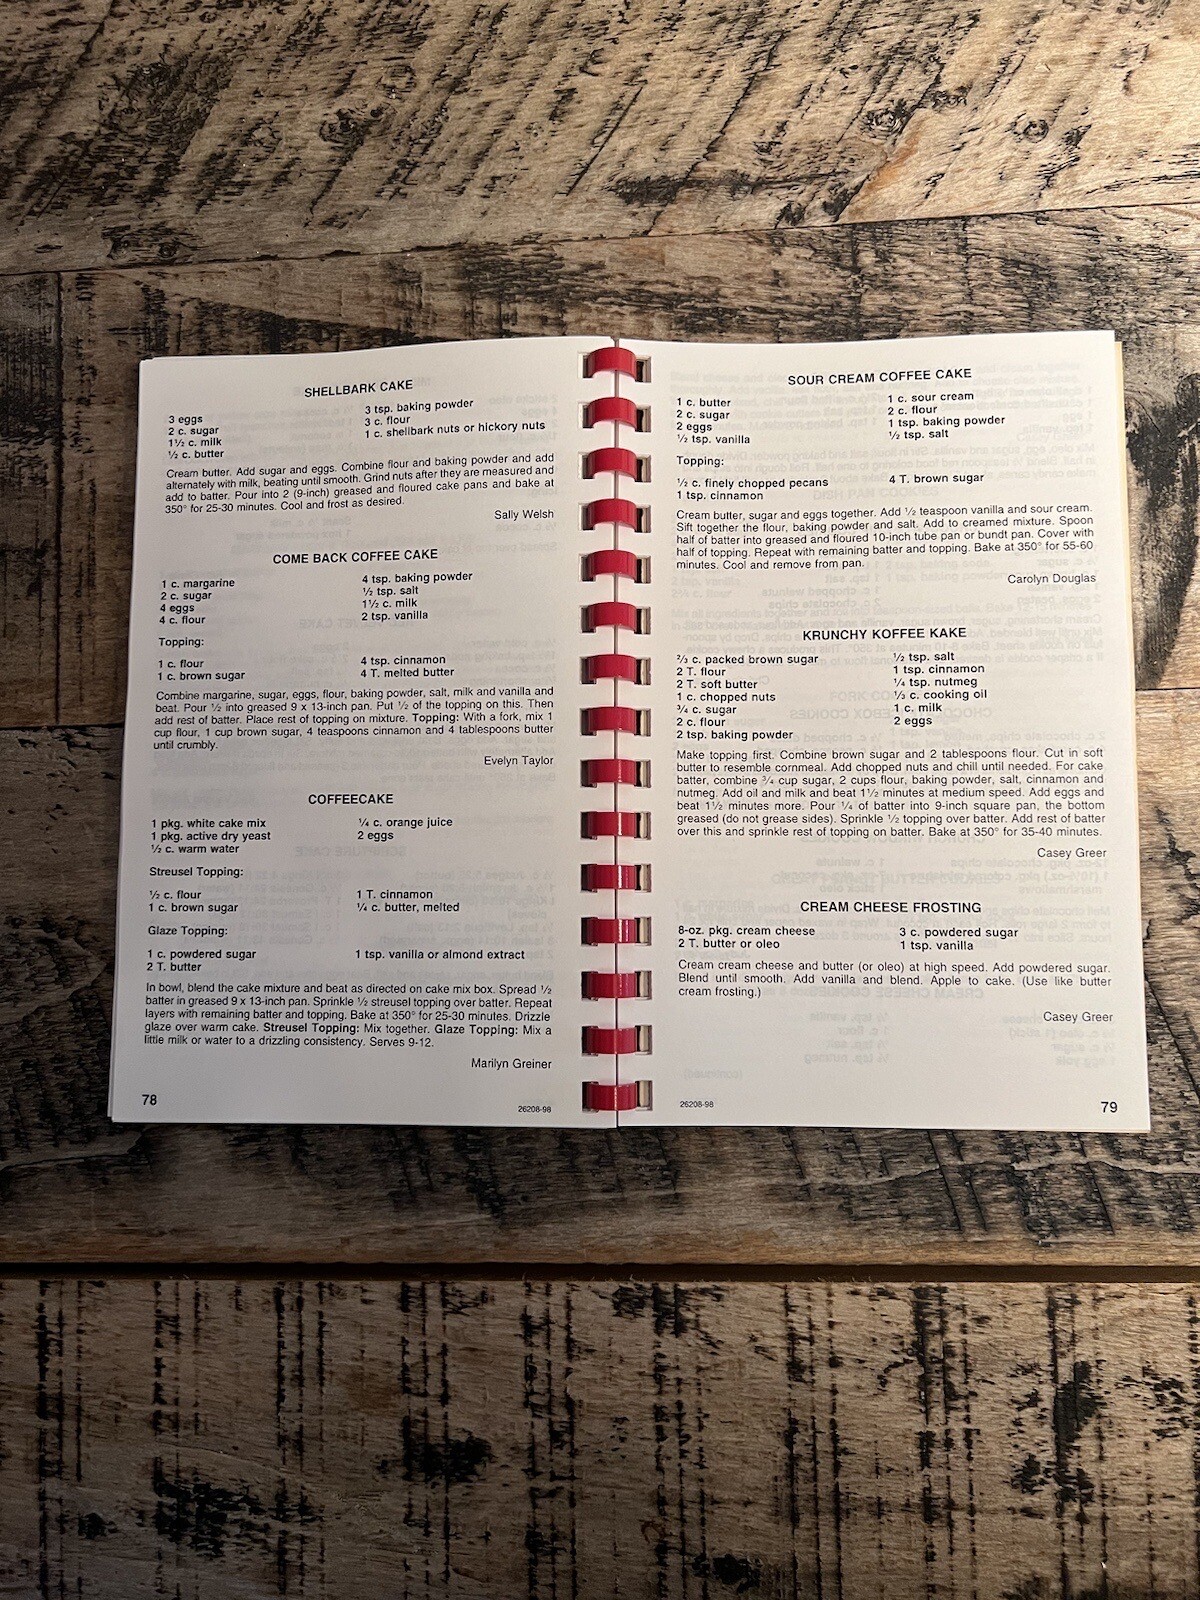 SHELLBARK CAKE
3 eggs
2 c. sugar
1½ c. milk
½ c. butter
3 tsp. baking powder
3 c. flour
1 c. shellbark nuts or hickory nuts
Cream butter. Add sugar and eggs. Combine flour and baking powder and add
alternately with milk, beating until smooth. Grind nuts after they are measured and
add to batter. Pour into 2 (9-inch) greased and floured cake pans and bake at
350° for 25-30 minutes. Cool and frost as desired.
Sally Welsh
COME BACK COFFEE CAKE
1 c. margarine
2 c. sugar
4 eggs
4 c. flour
4 tsp. baking powder
½ tsp. salt
1½ c. milk
2 tsp. vanilla
Topping:
1 c. flour
1 c. brown sugar
4 tsp. cinnamon
4 T. melted butter
Combine margarine, sugar, eggs, flour, baking powder, salt, milk and vanilla and
beat. Pour ½ into greased 9 x 13-inch pan. Put ½ of the topping on this. Then
add rest of batter. Place rest of topping on mixture. Topping: With a fork, mix 1
cup flour, 1 cup brown sugar, 4 teaspoons cinnamon and 4 tablespoons butter
until crumbly.
Evelyn Taylor
COFFEECAKE
1 pkg. white cake mix
1 pkg. active dry yeast
½ c. warm water
¼ c. orange juice
2 eggs
Streusel Topping:
½ c. flour
1 c. brown sugar
1 T. cinnamon
¼ c. butter, melted
Glaze Topping:
1 c. powdered sugar
2 T. butter
1 tsp. vanilla or almond extract
In bowl, blend the cake mixture and beat as directed on cake mix box. Spread ½
batter in greased 9 x 13-inch pan. Sprinkle ½ streusel topping over batter. Repeat
layers with remaining batter and topping. Bake at 350° for 25-30 minutes. Drizzle
glaze over warm cake. Streusel Topping: Mix together. Glaze Topping: Mix a
little milk or water to a drizzling consistency. Serves 9-12.
Marilyn Greiner
78
26208-98
SOUR CREAM COFFEE CAKE
1 c. butter
2 c. sugar
2 eggs
½ tsp. vanilla
1 c. sour cream
2 c. flour
1 tsp. baking powder
½ tsp. salt
Topping:
½ c. finely chopped pecans
1 tsp. cinnamon
4 T. brown sugar
Cream butter, sugar and eggs together. Add ½ teaspoon vanilla and sour cream.
Sift together the flour, baking powder and salt. Add to creamed mixture. Spoon
half of batter into greased and floured 10-inch tube pan or bundt pan. Cover with
half of topping. Repeat with remaining batter and topping. Bake at 350° for 55-60
minutes. Cool and remove from pan.
Carolyn Douglas
KRUNCHY KOFFEE KAKE
⅔ c. packed brown sugar
2 T. flour
2 T. soft butter
1 c. chopped nuts
¾ c. sugar
2 c. flour
2 tsp. baking powder
½ tsp. salt
1 tsp. cinnamon
¼ tsp. nutmeg
⅓ c. cooking oil
1 c. milk
2 eggs
Make topping first. Combine brown sugar and 2 tablespoons flour. Cut in soft
butter to resemble cornmeal. Add chopped nuts and chill until needed. For cake
batter, combine ¾ cup sugar, 2 cups flour, baking powder, salt, cinnamon and
nutmeg. Add oil and milk and beat 1½ minutes at medium speed. Add eggs and
beat 1½ minutes more. Pour ¼ of batter into 9-inch square pan, the bottom
greased (do not grease sides). Sprinkle ½ topping over batter. Add rest of batter
over this and sprinkle rest of topping on batter. Bake at 350° for 35-40 minutes.
Casey Greer
CREAM CHEESE FROSTING
8-oz. pkg. cream cheese
2 T. butter or oleo
3 c. powdered sugar
1 tsp. vanilla
Cream cream cheese and butter (or oleo) at high speed. Add powdered sugar.
Blend until smooth. Add vanilla and blend. Apply to cake. (Use like butter
cream frosting.)
Casey Greer
26208-98
79